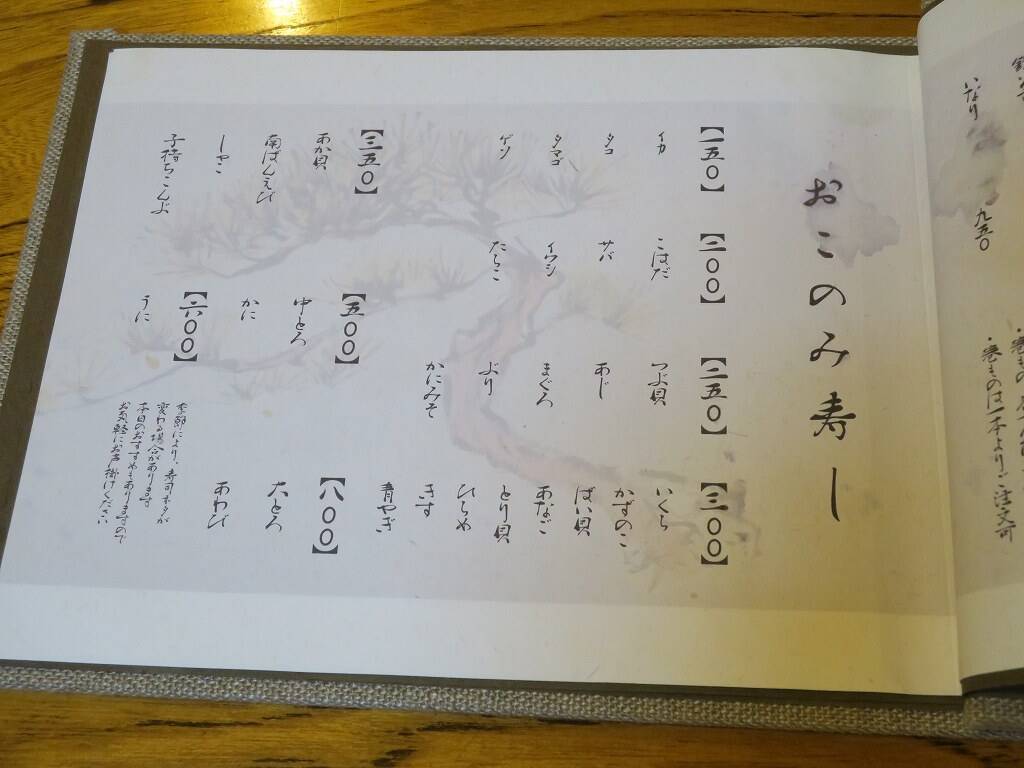 いなり 九五〇
・巻ものは一本よりご注文可
おこのみ寿し
【一五〇】
イカ
タコ
タマゴ
ゲソ
【二〇〇】
こはだ
サバ
イワシ
たらこ
【二五〇】
つぶ貝
あじ
まぐろ
ぶり
かにみそ
【三〇〇】
いくら
かずのこ
ばい貝
あなご
とり貝
ひらめ
きす
青やぎ
【三五〇】
あか貝
南ばんえび
しゃこ
子持ちこんぶ
【五〇〇】
中とろ
かに
【六〇〇】
うに
【八〇〇】
大とろ
あわび
季節により、寿司ネタが
変わる場合があります
本日のおすすめもありますので
お気軽にお声掛けください